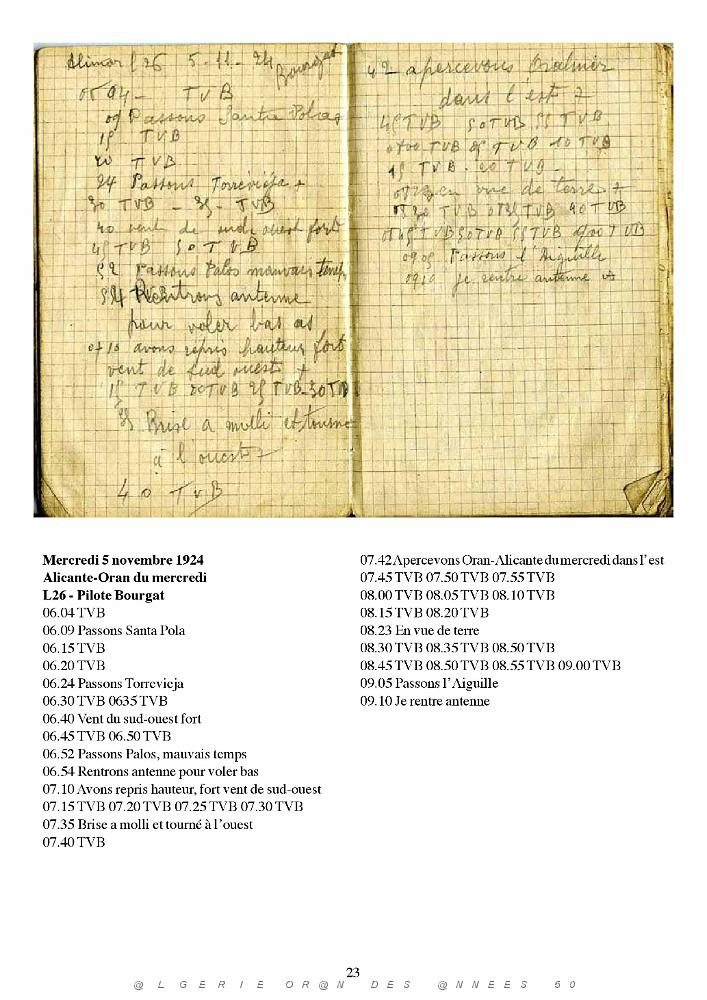 Alimor L26 5-11-24 Bourgat
0604 - TVB
09 Passons Santa Pola
15 TVB
20 TVB
24 Passons Torrevieja +
30 TVB - 35 - TVB
40 vent de sud ouest fort
45 TVB 50 TVB
52 Passons Palos mauvais temps
54 Rentrons antenne
pour voler bas as
0710 avons repris hauteur fort
vent de sud ouest +
15 TVB 20TVB 25 TVB-30TVB
35 Brise a molli et tourné
à l'ouest +
40 TVB
42 apercevons Oralmer
dans l'est +
45 TVB 50 TVB 55 TVB
0800 TVB 05 TVB 10 TVB
15 TVB - 20 TVB
0823 en vue de terre +
0830 TVB 0835 TVB 40 TVB
0845 TVB 50 TVB 55 TVB 0900 TVB
0905 Passons l'Aiguille
0910 je rentre antenne
Mercredi 5 novembre 1924
Alicante-Oran du mercredi
L26 - Pilote Bourgat
06.04 TVB
06.09 Passons Santa Pola
06.15 TVB
06.20 TVB
06.24 Passons Torrevieja
06.30 TVB 0635 TVB
06.40 Vent du sud-ouest fort
06.45 TVB 06.50 TVB
06.52 Passons Palos, mauvais temps
06.54 Rentrons antenne pour voler bas
07.10 Avons repris hauteur, fort vent de sud-ouest
07.15 TVB 07.20 TVB 07.25 TVB 07.30 TVB
07.35 Brise a molli et tourné à l'ouest
07.40 TVB
07.42 Apercevons Oran-Alicante du mercredi dans l'est
07.45 TVB 07.50 TVB 07.55 TVB
08.00 TVB 08.05 TVB 08.10 TVB
08.15 TVB 08.20 TVB
08.23 En vue de terre
08.30 TVB 08.35 TVB 08.50 TVB
08.45 TVB 08.50 TVB 08.55 TVB 09.00 TVB
09.05 Passons l'Aiguille
09.10 Je rentre antenne
23
@LGERIE OR@N DES @NNEES 50